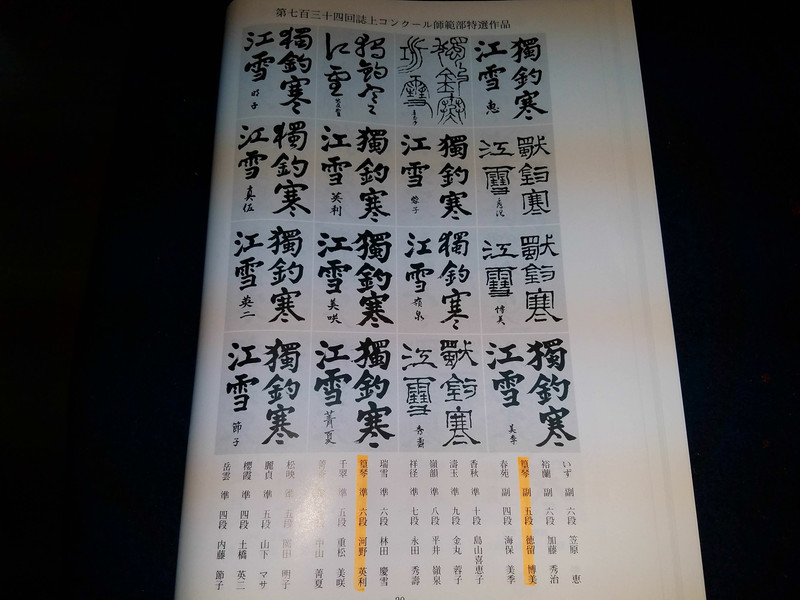 第七百三十四回誌上コンクール師範部特選作品
獨釣寒
江雪 恵
獨釣寒
江雪
獨釣寒
江雪 博美
獨釣寒
江雪 美季
獨釣寒
江雪
獨釣寒
江雪 蓉子
獨釣寒
江雪 嶺泉
獨釣寒
江雪 秀壽
獨釣寒
江雪
獨釣寒
江雪 英利
獨釣寒
江雪 美咲
獨釣寒
江雪 菁夏
獨釣寒
江雪 明子
獨釣寒
江雪
獨釣寒
江雪
獨釣寒
江雪 節子
いず 副 六段 笠原 恵
裕蘭 副 六段 加藤 秀治
篁琴 副 五段 徳留 博美
春苑 副 四段 海保 美季
香秋 準 十段 島山喜恵子
濤玉 準 九段 金丸 蓉子
嶺韻 準 八段 平井 嶺泉
祥径 準 七段 永田 秀壽
瑞雪 準 六段 林田 慶雪
篁琴 準 六段 河野 英利
千翠 準 五段 重松 美咲
中山 菁夏
松映 準 五段 岡田 明子
麗貞 準 五段 山下 マサ
櫻霞 準 四段 土橋 英三
岳雲 準 四段 内藤 節子